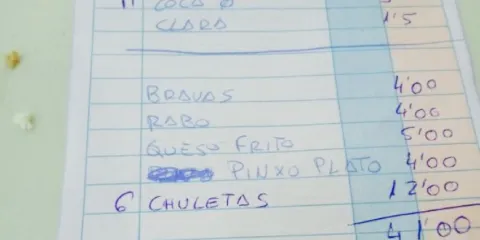 11 COCA 0
CLARA 1'5
BRAVAS 4'00
RABO 4'00
QUESO FRITO 5'00
PINXO PLATO 4'00
6 CHULETAS 12'00
41'00